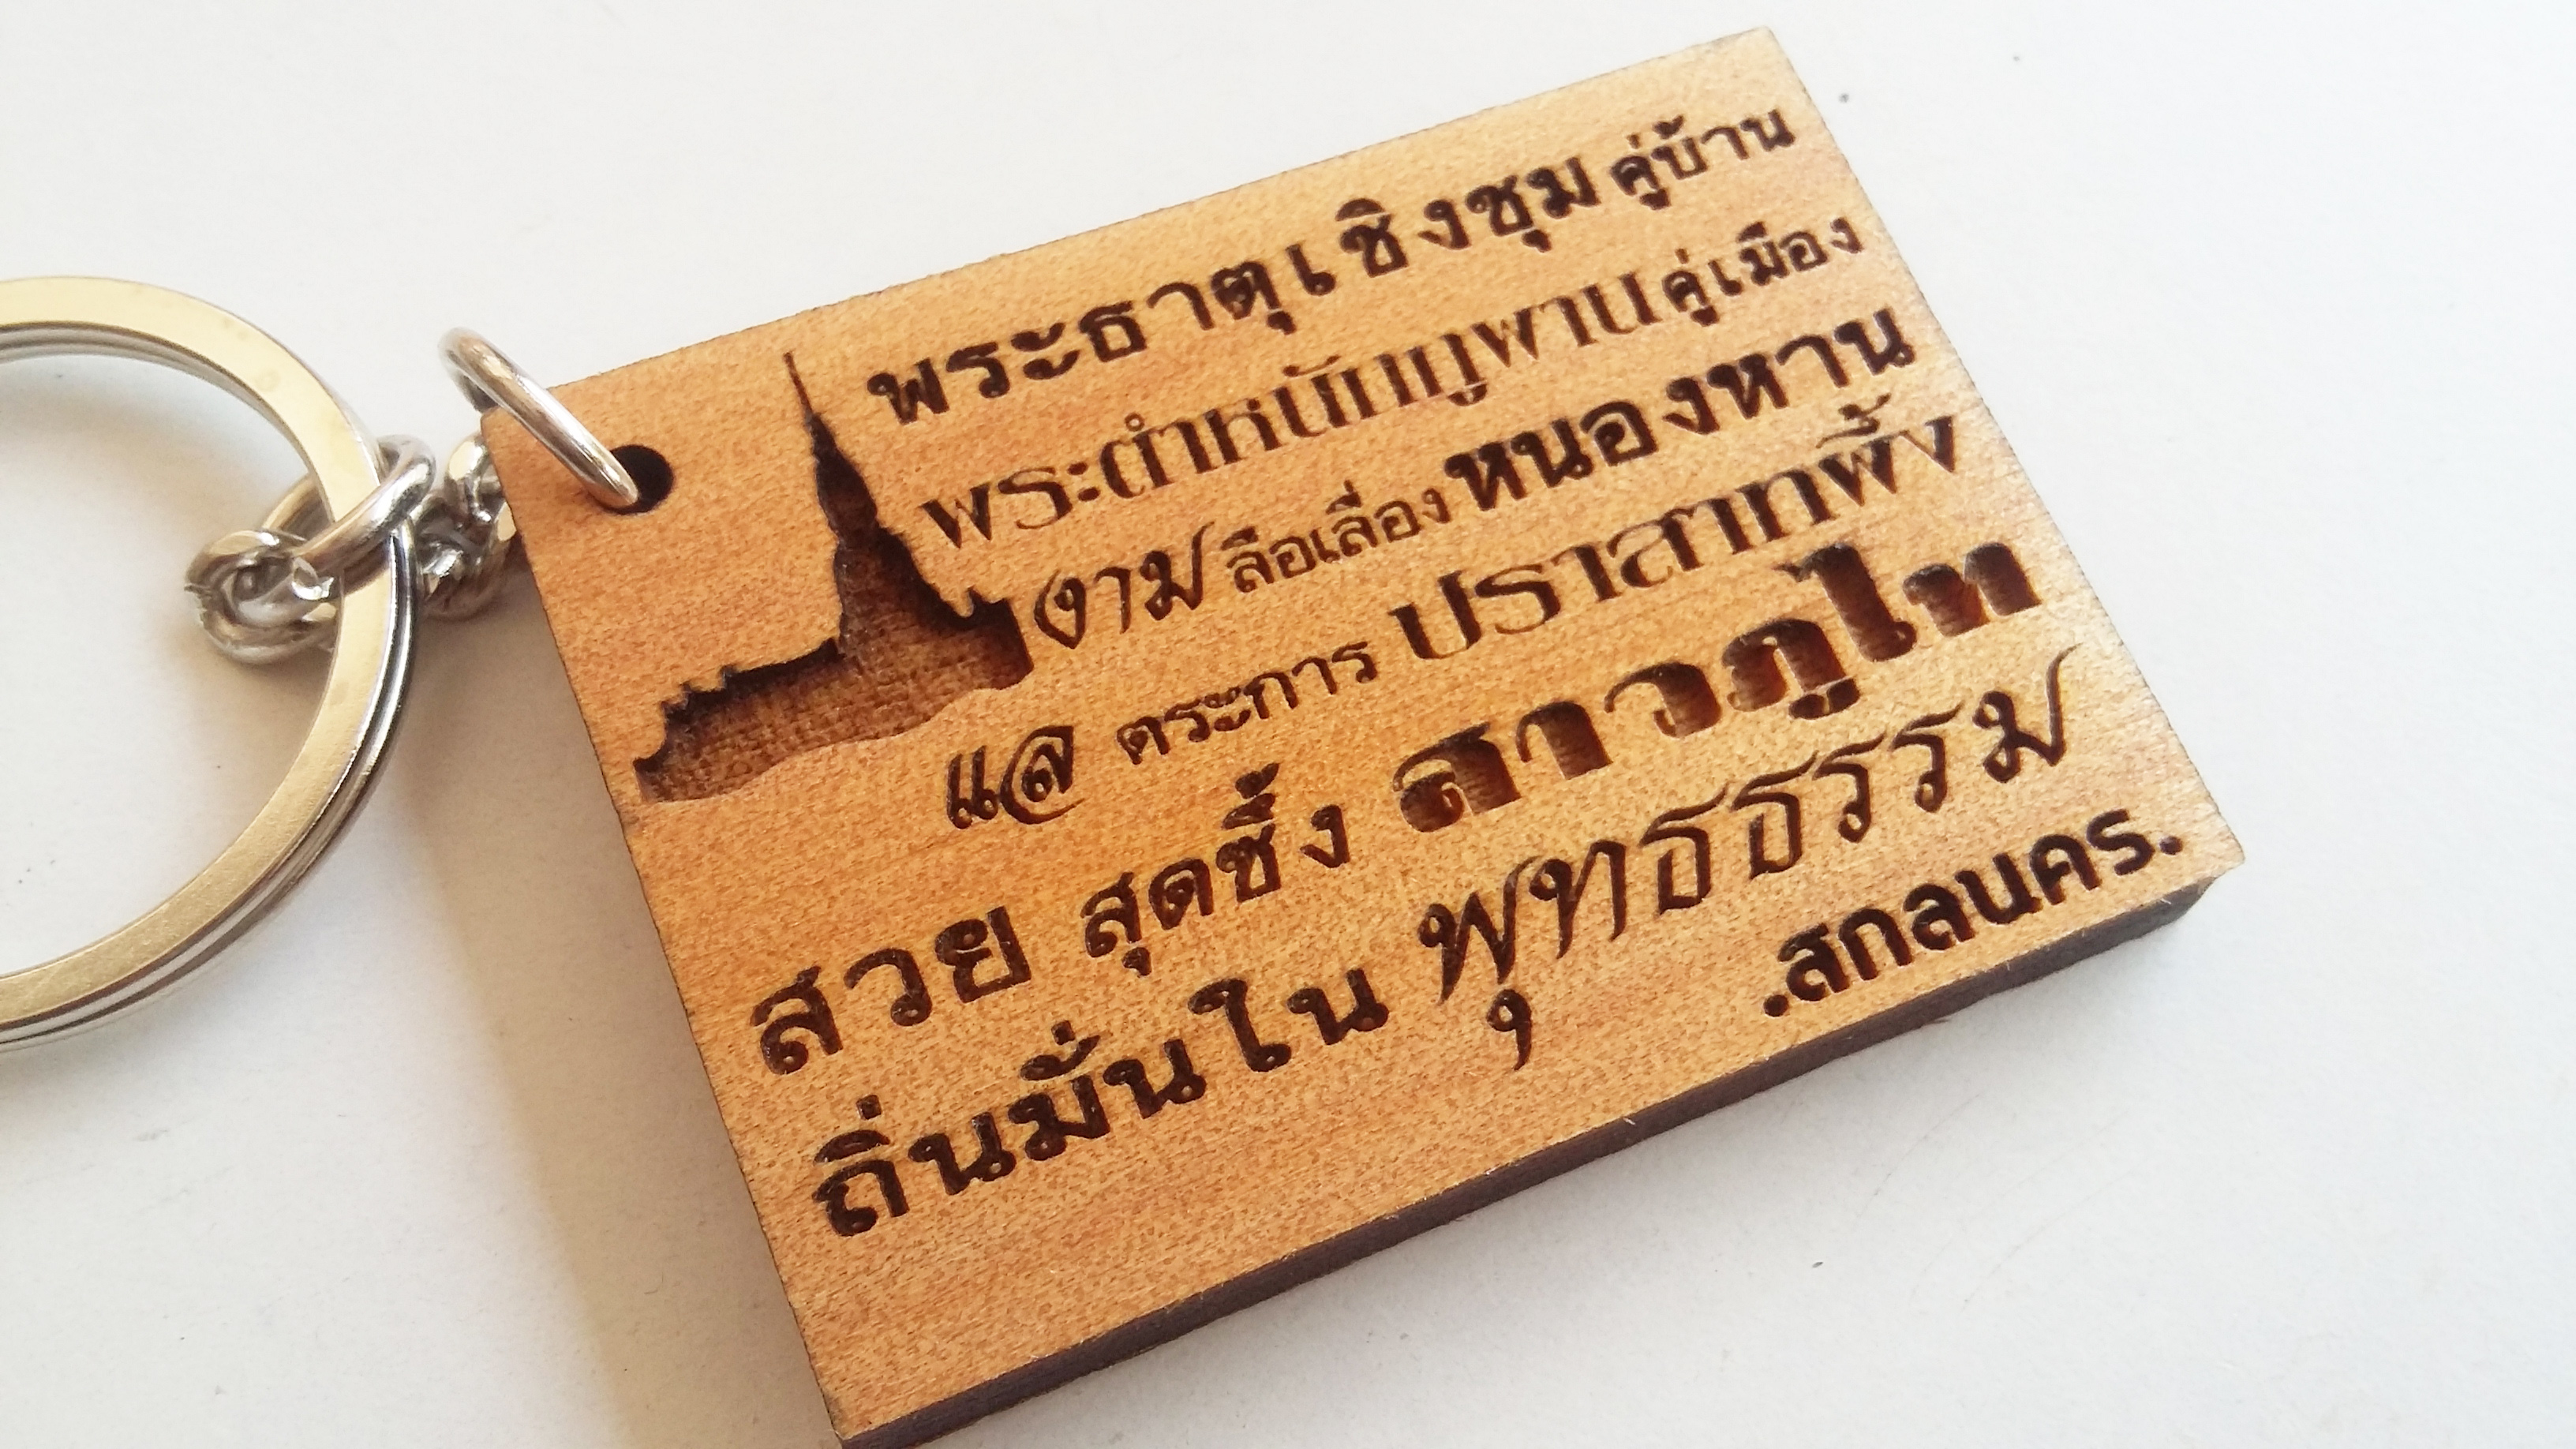 พระธาตุเชิงชุม คู่บ้าน
พระตำหนักภูพาน คู่เมือง
งาม ลือเลื่อง หนองหาน
แล ตระการ ปราสาทผึ้ง
สวย สุดซึ้ง สาวภูไท
ถิ่นมั่นใน พุทธธรรม
.สกลนคร.